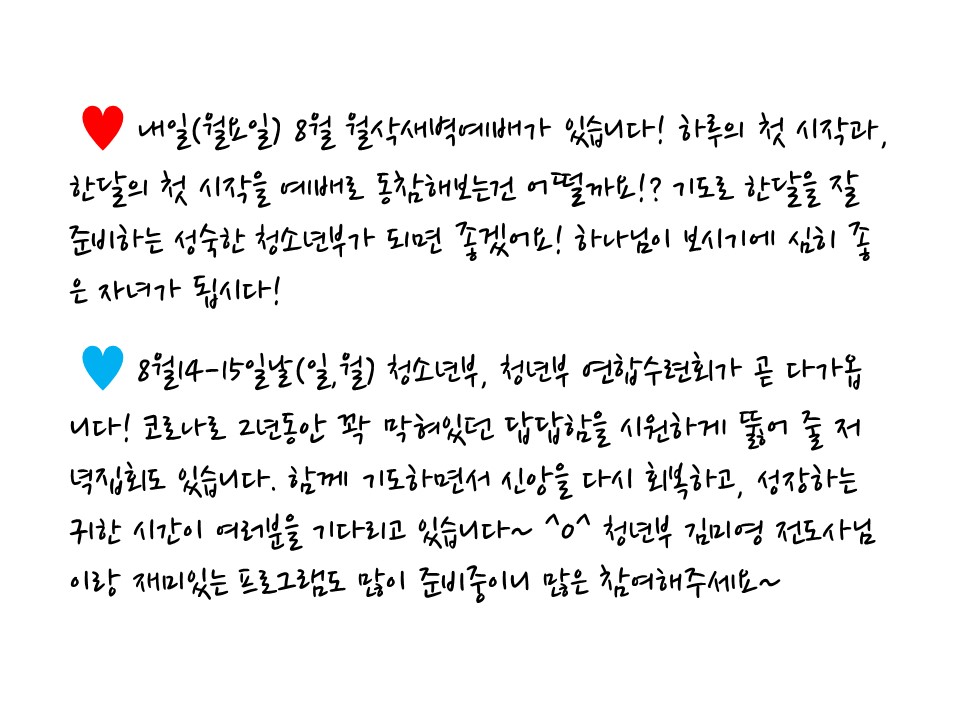 ♥ 내일(월요일) 8월 월삭새벽예배가 있습니다! 하루의 첫 시작과,
한달의 첫 시작을 예배로 동참해보는건 어떨까요!? 기도로 한달을 잘
준비하는 성숙한 청소년부가 되면 좋겠어요! 하나님이 보시기에 심히 좋
은 자녀가 됩시다!
♥ 8월14-15일날(일,월) 청소년부, 청년부 연합수련회가 곧 다가옵
니다! 코로나로 2년동안 꽉 막혀있던 답답함을 시원하게 뚫어 줄 저
녁집회도 있습니다. 함께 기도하면서 신앙을 다시 회복하고, 성장하는
귀한 시간이 여러분을 기다리고 있습니다~ ^o^ 청년부 김미영 전도사님
이랑 재미있는 프로그램도 많이 준비중이니 많은 참여해주세요~